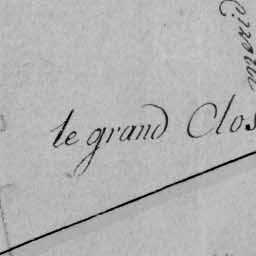 le grand Clos